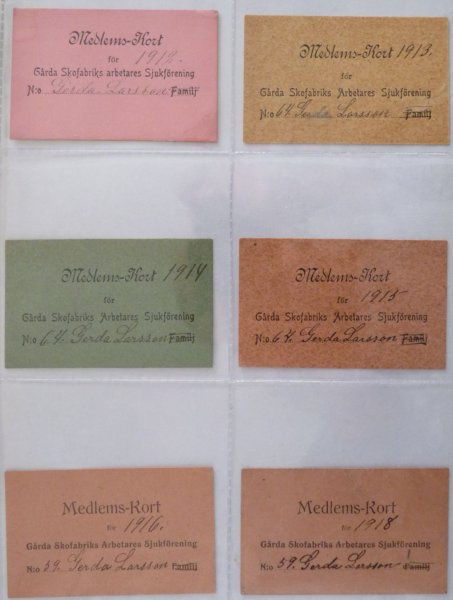 Medlems-Kort
för 1912.
Gårda Skofabriks arbetares Sjukförening
N:o Gerda Larsson Familj
Medlems-Kort 1913.
för
Gårda Skofabriks Arbetares Sjukförening
N:o 64 Gerda Larsson Familj
Medlems-Kort 1914
för
Gårda Skofabriks Arbetares Sjukförening
N:o 64. Gerda Larsson Familj
Medlems-Kort
för 1915
Gårda Skofabriks Arbetares Sjukförening
N:o 64. Gerda Larsson Familj
Medlems-Kort
för 1916.
Gårda Skofabriks Arbetares Sjukförening
N:o 59. Gerda Larsson Familj
Medlems-Kort
för 1918
Gårda Skofabriks Arbetares Sjukförening
N:o 59. Gerda Larsson Familj